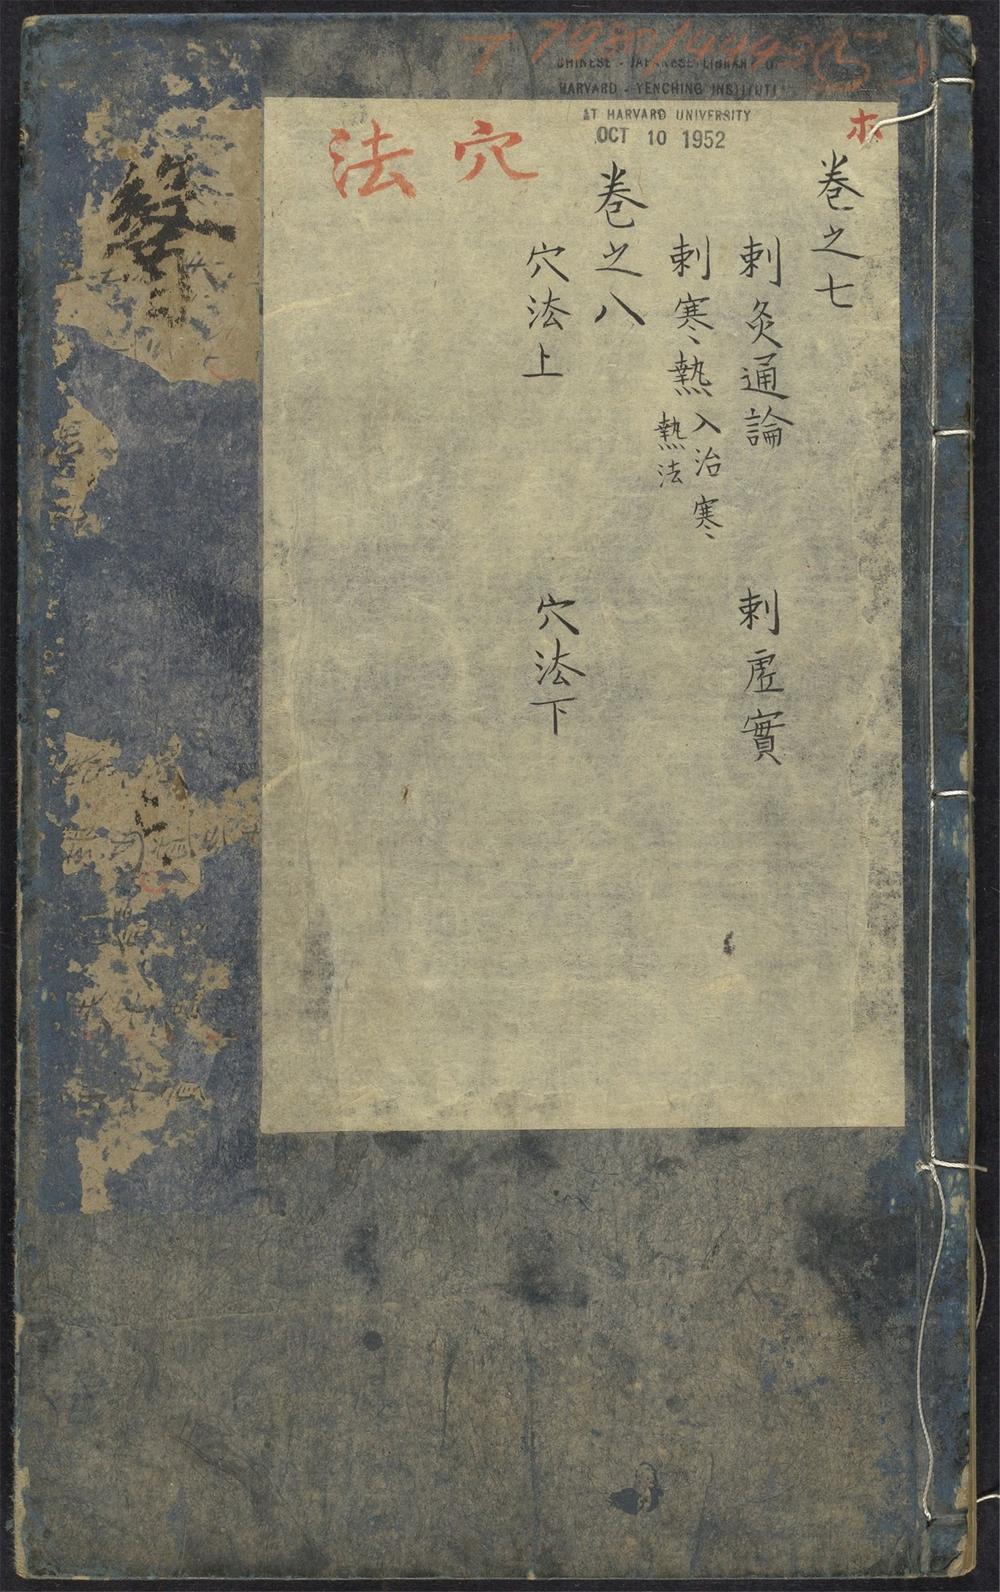 T 7980/4440 (5)
CHINESE - JAPANESE LIBRARY OF
HARVARD - YENCHING INSTITUTE
AT HARVARD UNIVERSITY
OCT 10 1952
穴法
ホ
卷之七
刺灸通論 刺虛實
刺寒熱 入治寒
熱法
卷之八
穴法上 穴法下